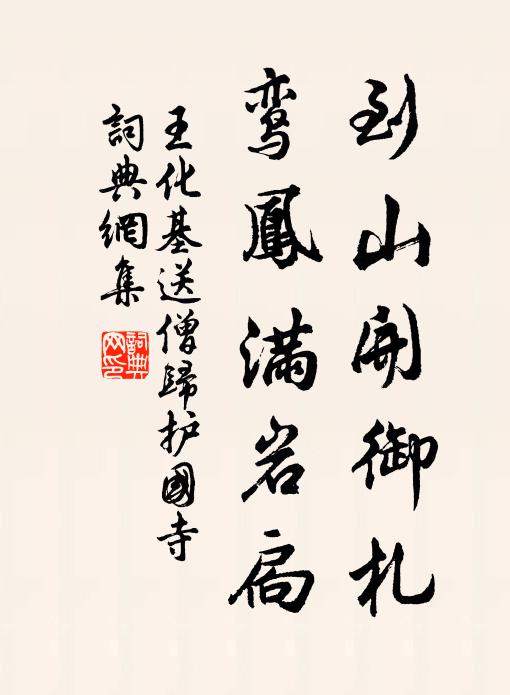 到山开御札
鸾鳳满岩扃
王化基送僧歸护國寺
詞典網集
詞典網印